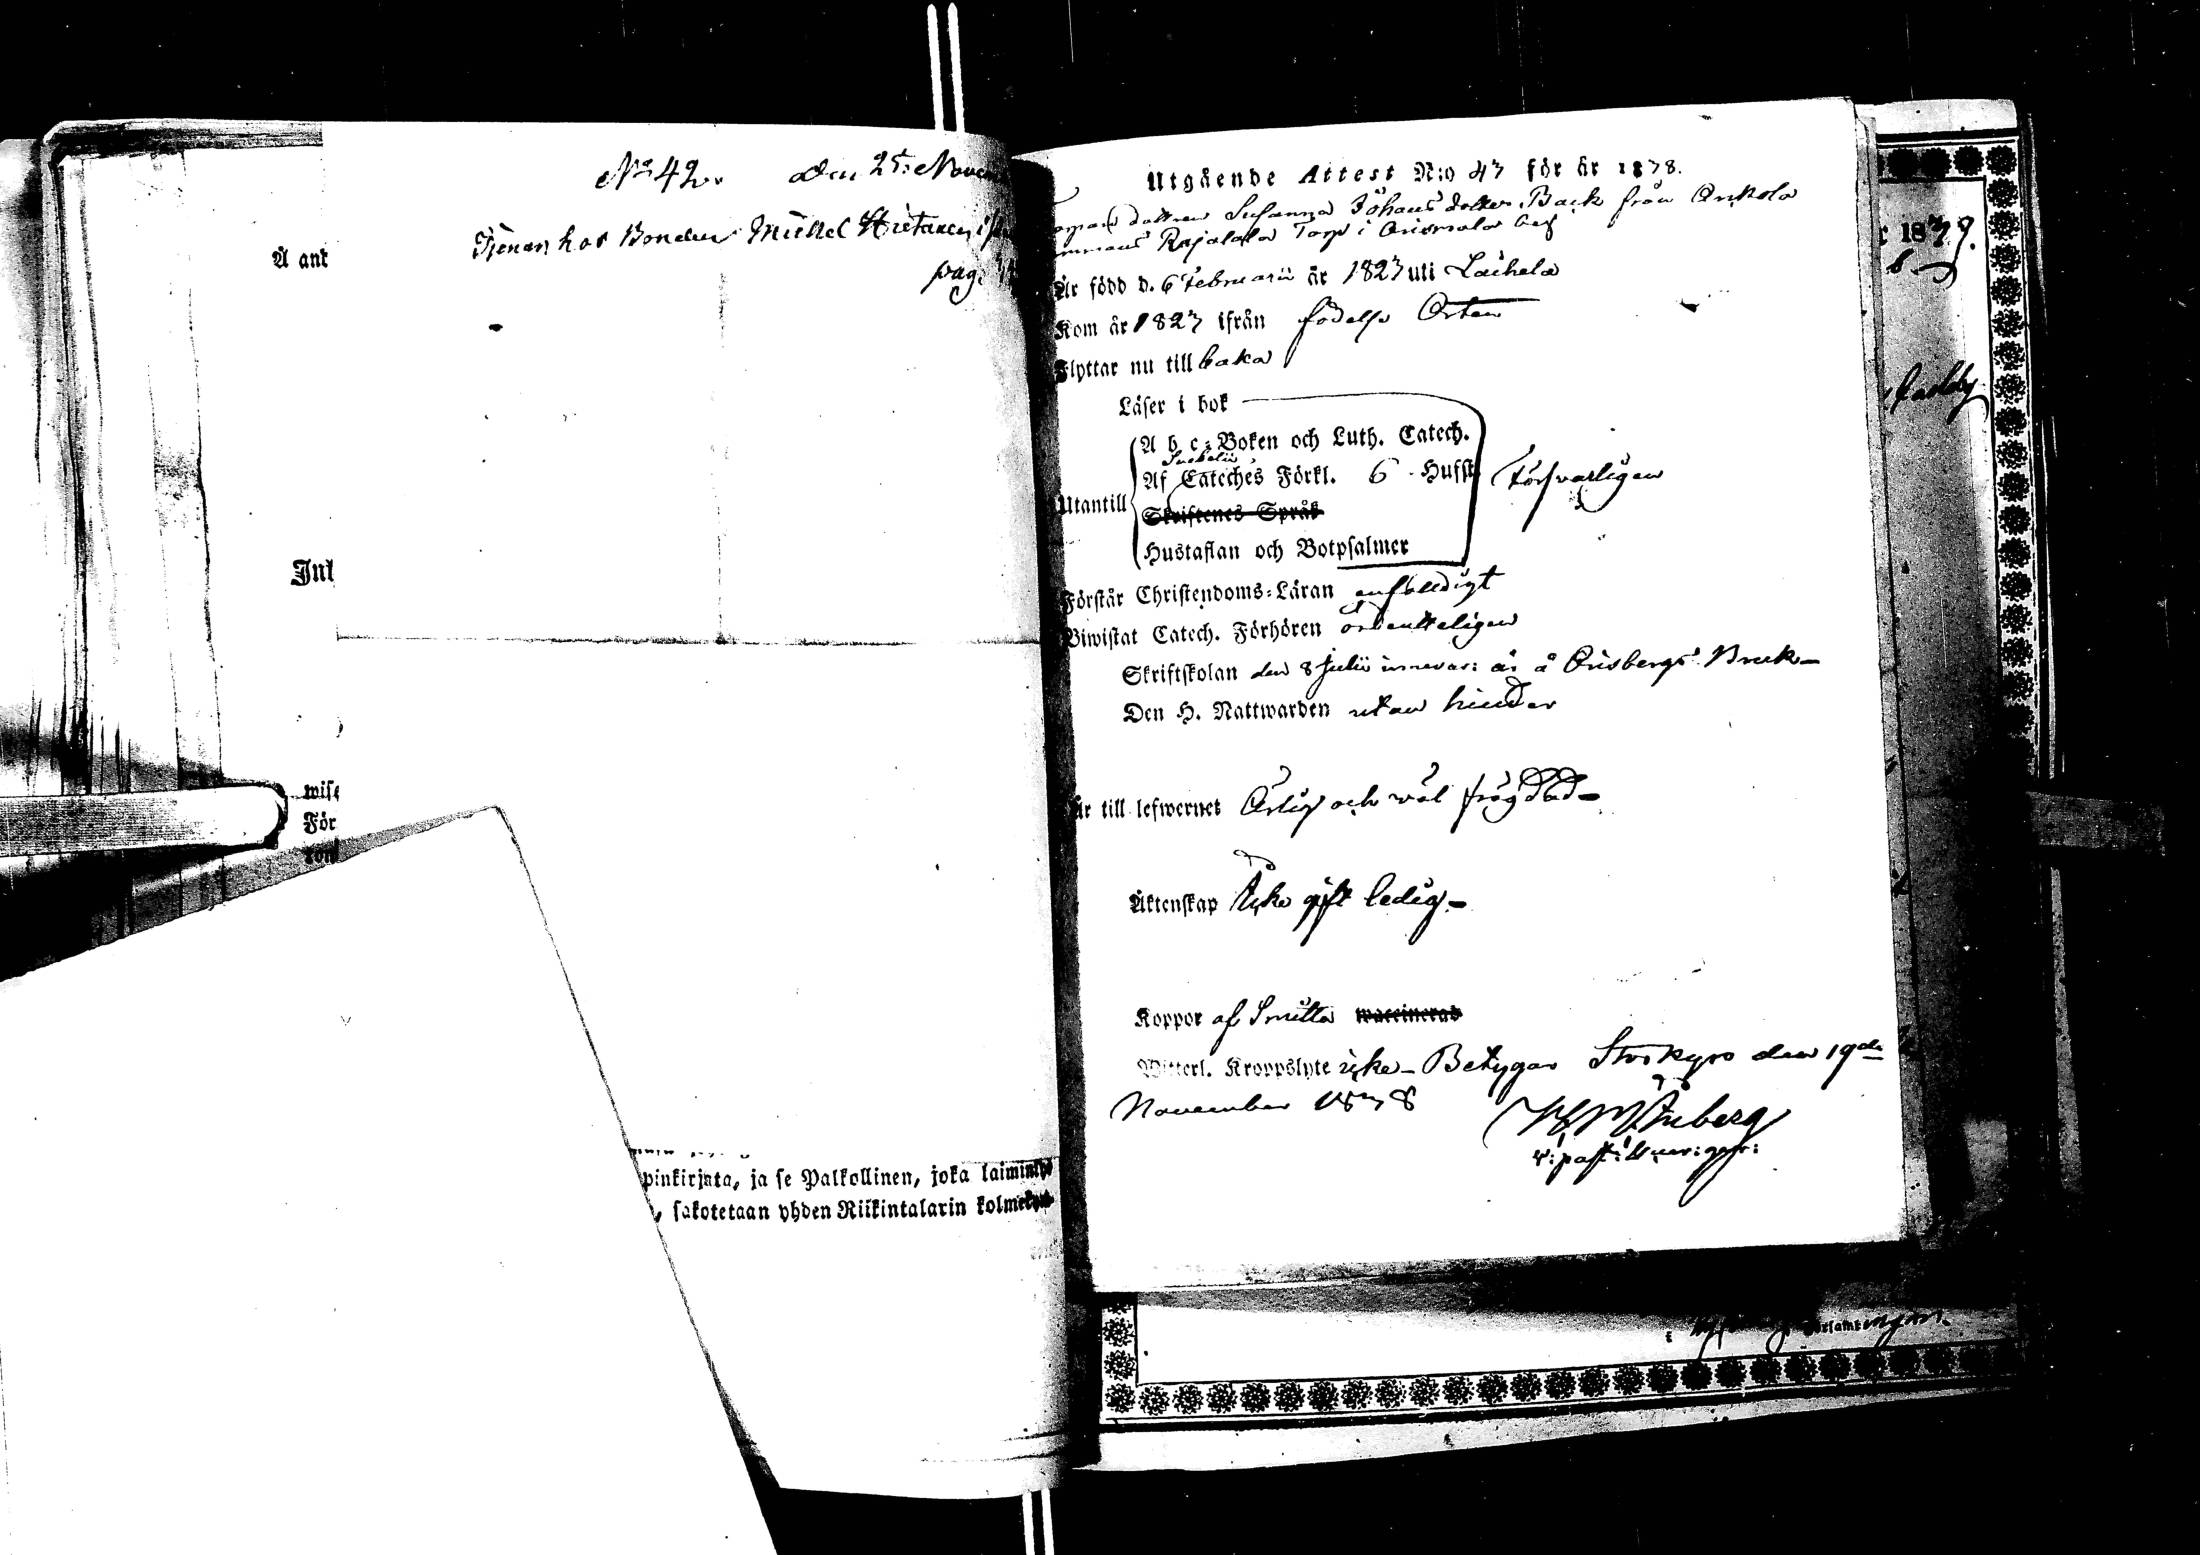 No 42. den 25 Novem
Tjenar hos Bonden Mickel Hietanen i
pag.
Å ank
Ink
wise
För
pinkirjata, ja se Palkollinen, joka laiminlyö
, sakotetaan yhden Riikintalarin kolmekym
Utgående Attest N:o 47 för år 1878.
dottren Susanna Johans dotter Back från Orikola
Rajalala Torp i Orismala
Är född d. 6 Februarii år 1827 uti Laihela
Kom år 1827 ifrån födelse Orten
Flyttar nu till baka
Läser i bok
A b c-Boken och Luth. Catech.
Svebelii
Af Catechës Förkl. 6 Hufst.
Försvarligen
Utantill
Skriftenes Språk
Hustaflan och Botpsalmer
Förstår Christendoms-Läran enfaldigt
Biwistat Catech. Förhören ordentteligen
Skriftskolan den 8 Julii innevar: år å Orisbergs Bruk
Den H. Nattwarden utan hinder
Är till lefwernet Ärlig och väl frägdad
Äktenskap Icke gift ledig
Koppor af Smitta waccinerad
Witterl. Kroppslyte icke Betygar Storkyro den 19de
November 1878
v: past:
187